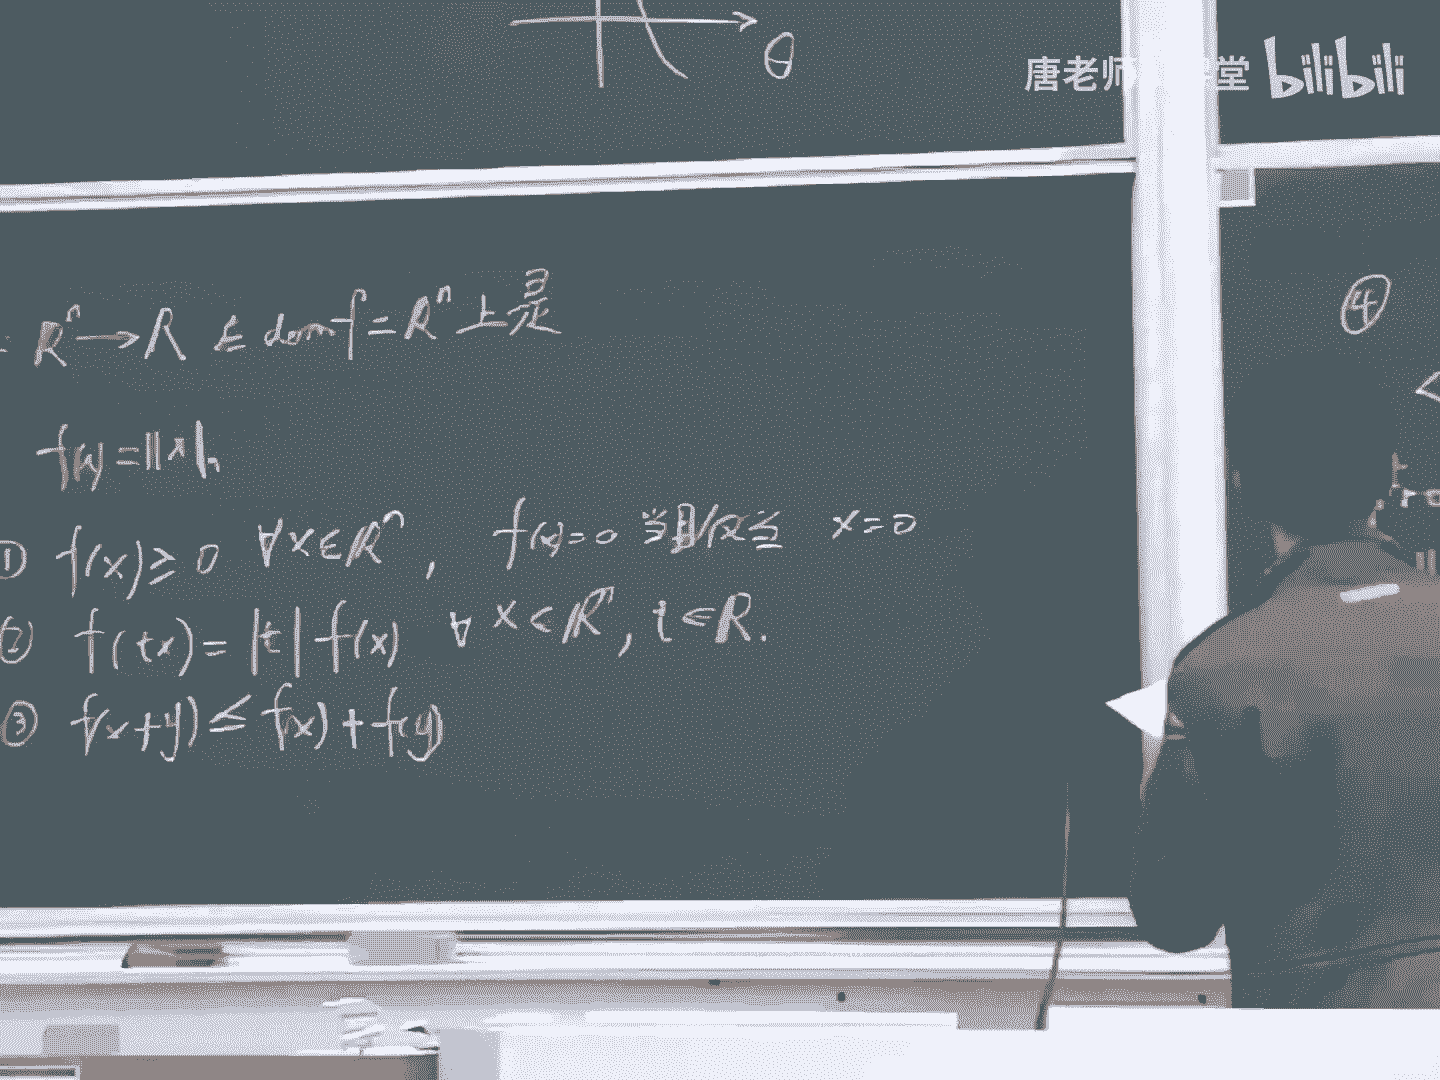 θ
唐老师 堂 bilibili
: Rⁿ → R 在 dom f = Rⁿ 上是
f(x) = ||x||ₙ
① f(x) ≥ 0 ∀x∈Rⁿ, f(x)=0 当且仅当 x=0
② f(tx) = |t| f(x) ∀ x∈Rⁿ, t∈R.
③ f(x+y) ≤ f(x) + f(y)
④